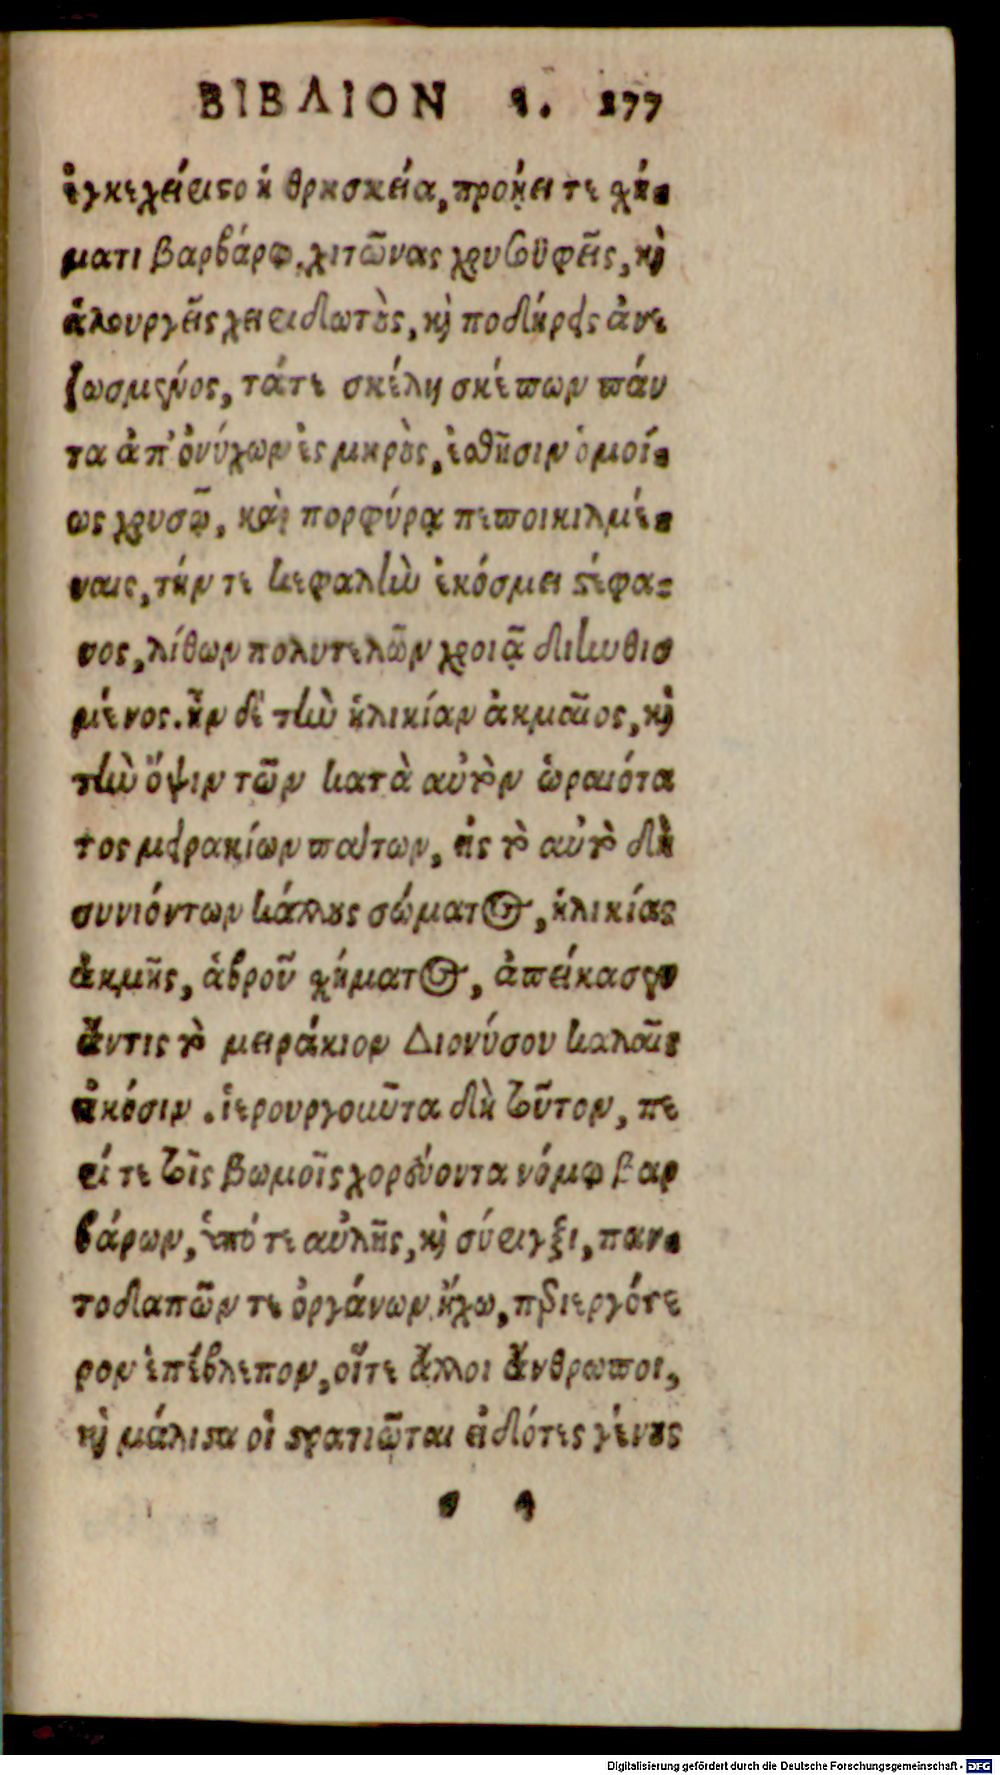 ΒΙΒΛΙΟΝ ε. 277
ἐγκεχείριστο ἡ θρησκεία, προῄει τε χή-
ματι βαρβάρῳ, χιτῶνας χρυσοϋφεῖς, καὶ
ἁλουργεῖς χειριδωτοὺς, καὶ ποδήρεις ἀνε
ζωσμένος, τάτε σκέλη σκέπων πάν
τα ἀπ' ὀνύχων ἐς μηροὺς, ἐσθῆσιν ὁμοί-
ως χρυσῷ, καὶ πορφύρᾳ πεποικιλμέ-
ναις, τήν τε κεφαλὴν ἐκόσμει στέφα-
νος, λίθων πολυτελῶν χροιᾷ διηνθισ
μένος. ἦν δὲ τὴν ἡλικίαν ἀκμαῖος, καὶ
τὴν ὄψιν τῶν κατὰ αὐτὸν ὡραιότα
τος μειρακίων πάντων, εἰς τὸ αὐτὸ δὴ
συνιόντων κάλλους σώματος, ἡλικίας
ἀκμῆς, ἁβροῦ χήματος, ἀπείκασεν
ἄντις τὸ μειράκιον Διονύσου καλαῖς
εἰκόσιν. ἱερουργοῦντα δὴ τοῦτον, πε
ρί τε τοῖς βωμοῖς χορεύοντα νόμῳ βαρ
βάρων, ὑπό τε αὐλῆς, καὶ σύριγξι, παν-
τοδαπῶν τε ὀργάνων ἤχω, περιεργότε
ρον ἐπέβλεπον, οἵτε ἄλλοι ἄνθρωποι,
καὶ μάλιστα οἱ στρατιῶται εἰδότες γένους